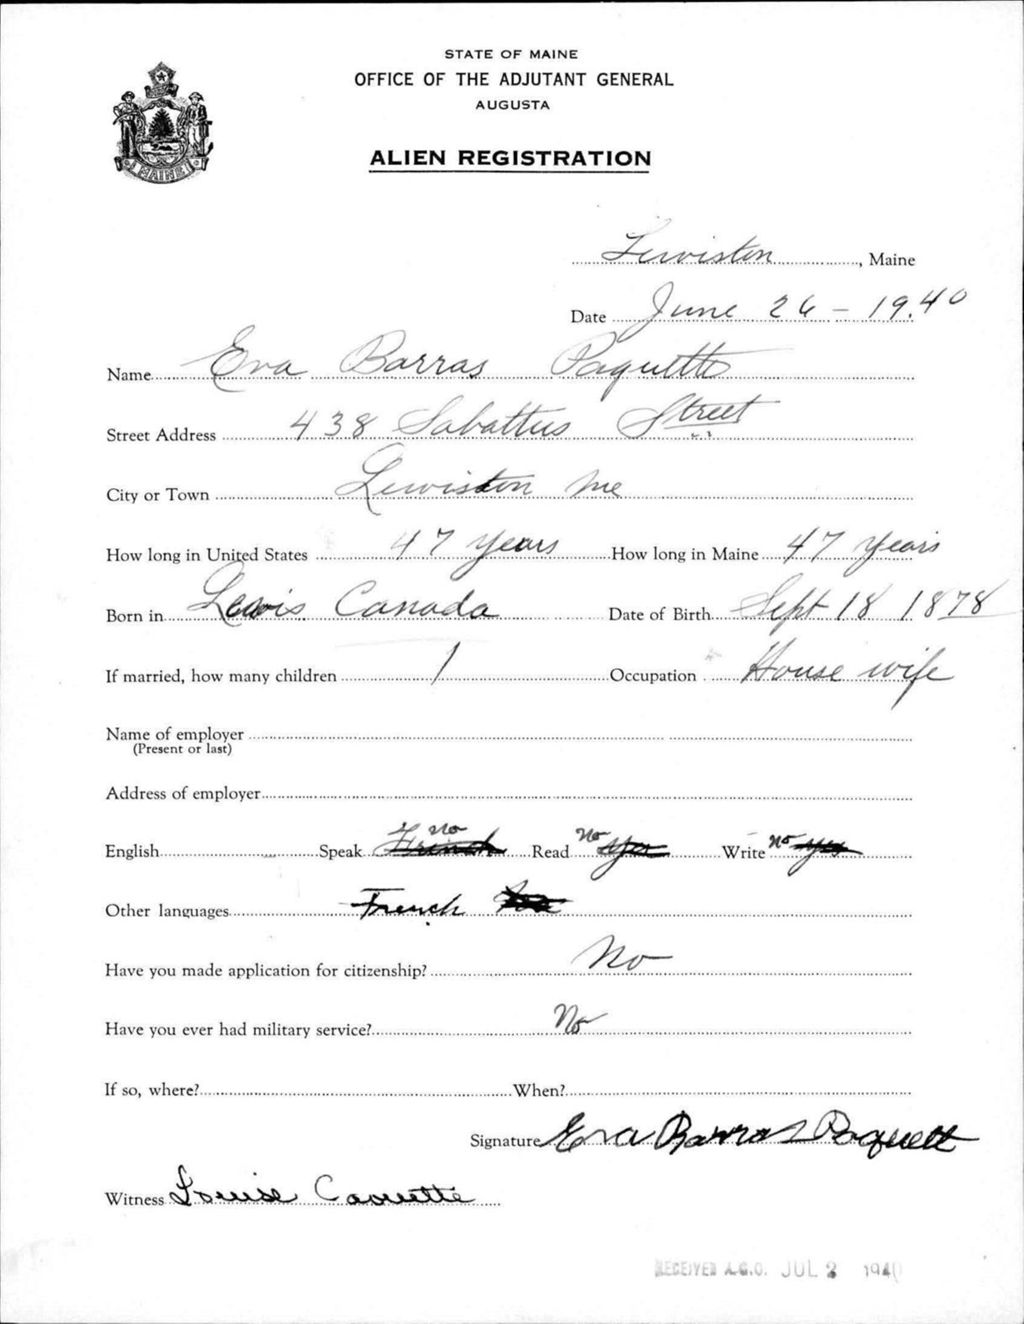 STATE OF MAINE
OFFICE OF THE ADJUTANT GENERAL
AUGUSTA
ALIEN REGISTRATION
MAINE
Lewiston, Maine
Date June 26 - 19.40
Name Eva Barras Paquette
Street Address 438 Sabattus Street
City or Town Lewiston Me
How long in United States 47 Years How long in Maine 47 Years
Born in Lewis Canada Date of Birth Sept 18 1878
If married, how many children 1 Occupation House wife
Name of employer
(Present or last)
Address of employer
English Speak French no Read no yes Write no yes
Other languages French
Have you made application for citizenship? No
Have you ever had military service? No
If so, where? When?
Signature Eva Barras Paquett
Witness Louise Caouette
RECEIVED A.G.O. JUL 2 1940